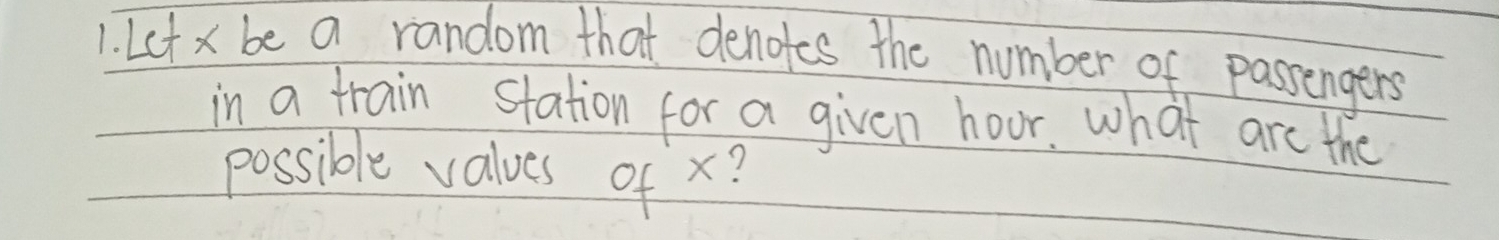 1. Let x be a random that denotes the number of passengers
in a train station for a given hour. What are the
possible values of x?